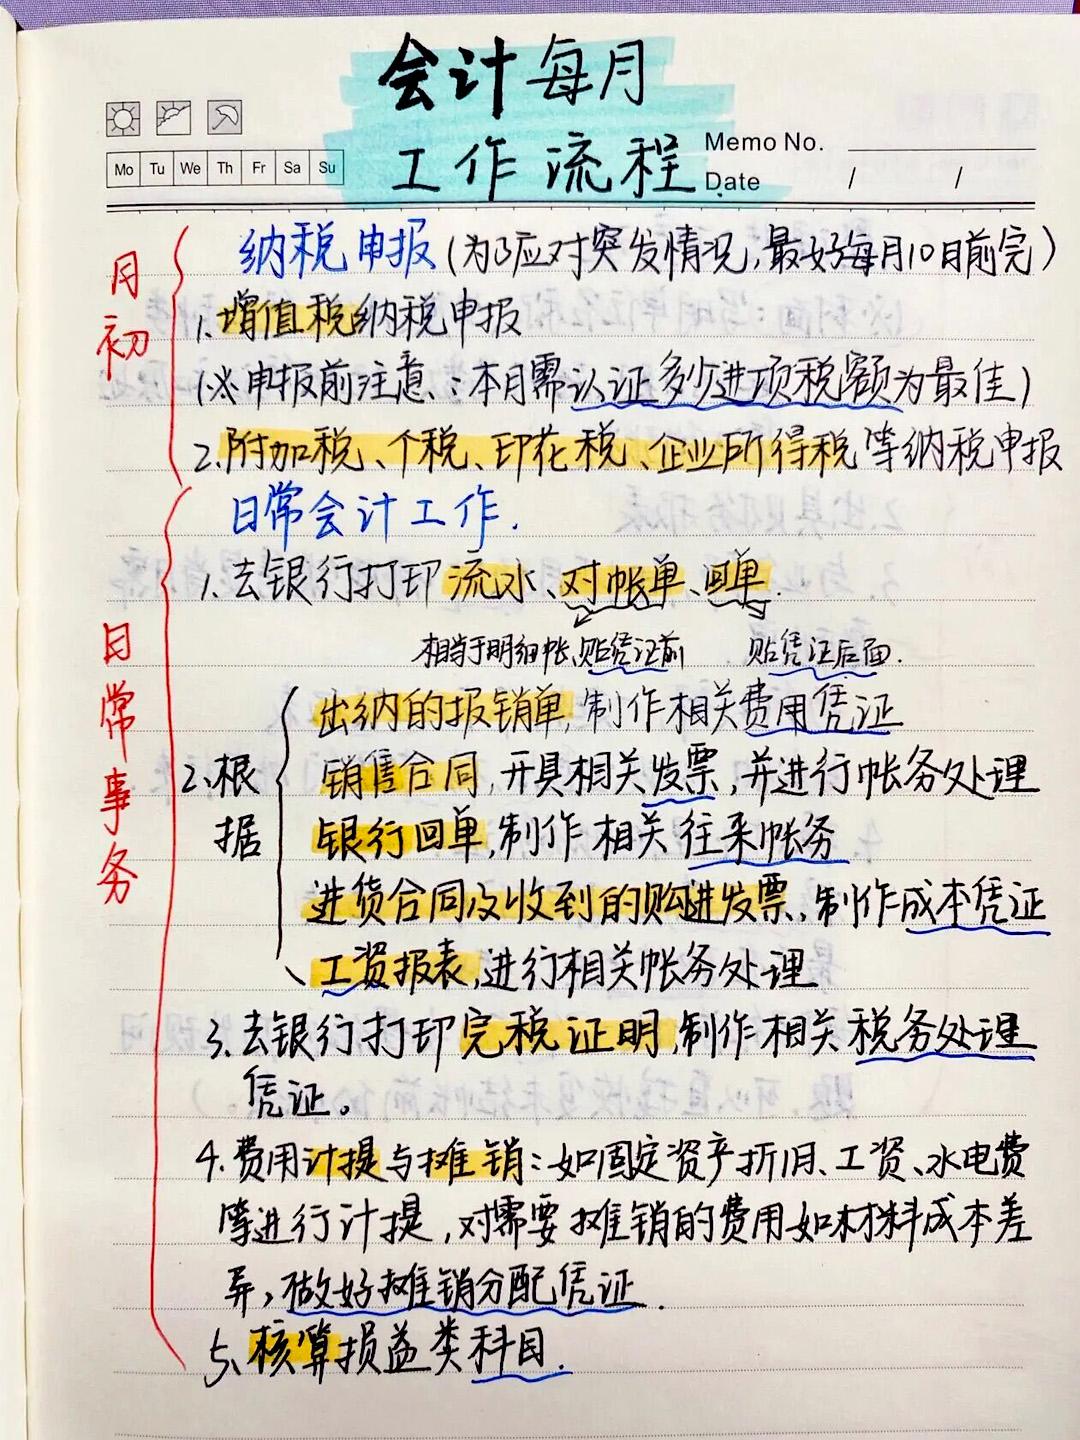 会计每月
工作流程
Memo No.
Mo Tu We Th Fr Sa Su
Date / /
月初
纳税申报(为了应对突发情况,最好每月10日前完)
1.增值税纳税申报
(※申报前注意:本月需认证多少进项税额为最佳)
2.附加税、个税、印花税、企业所得税等纳税申报
日常事务
日常会计工作.
1.去银行打印流水、对帐单、回单.
相当于明细帐,贴凭证前 贴凭证后面.
2.根据
出纳的报销单,制作相关费用凭证
销售合同,开具相关发票,并进行帐务处理
银行回单,制作相关往来帐务
进货合同及收到的购进发票,制作成本凭证
工资报表,进行相关帐务处理
3.去银行打印完税证明,制作相关税务处理
凭证。
4.费用计提与摊销:如固定资产折旧、工资、水电费
等进行计提,对需要摊销的费用如材料成本差
异,做好摊销分配凭证.
5、核算损益类科目.